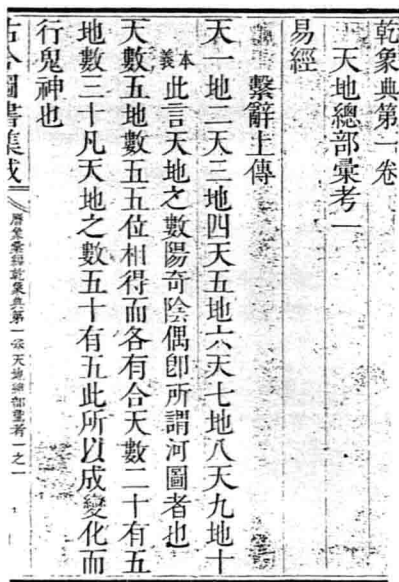 乾象典第一卷
天地總部彙考一
易經
繫辭上傳
天一地二天三地四天五地六天七地八天九地十
本義此言天地之數陽奇陰偶卽所謂河圖者也
天數五地數五五位相得而各有合天數二十有五
地數三十凡天地之數五十有五此所以成變化而
行鬼神也
古今圖書集成
曆象彙編乾象典第一卷天地總部彙考一之一